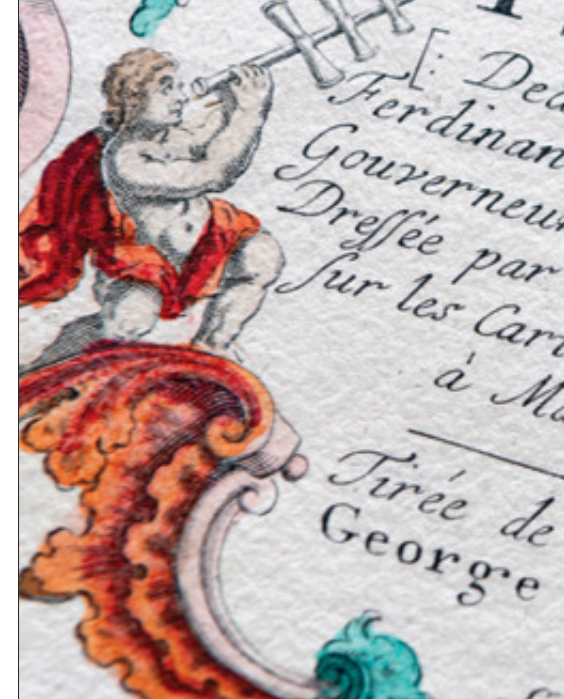 [: Ded
Ferdinan
Gouverneur
Dreſſée par
ſur les Cart
à Ma
Tirée de
George